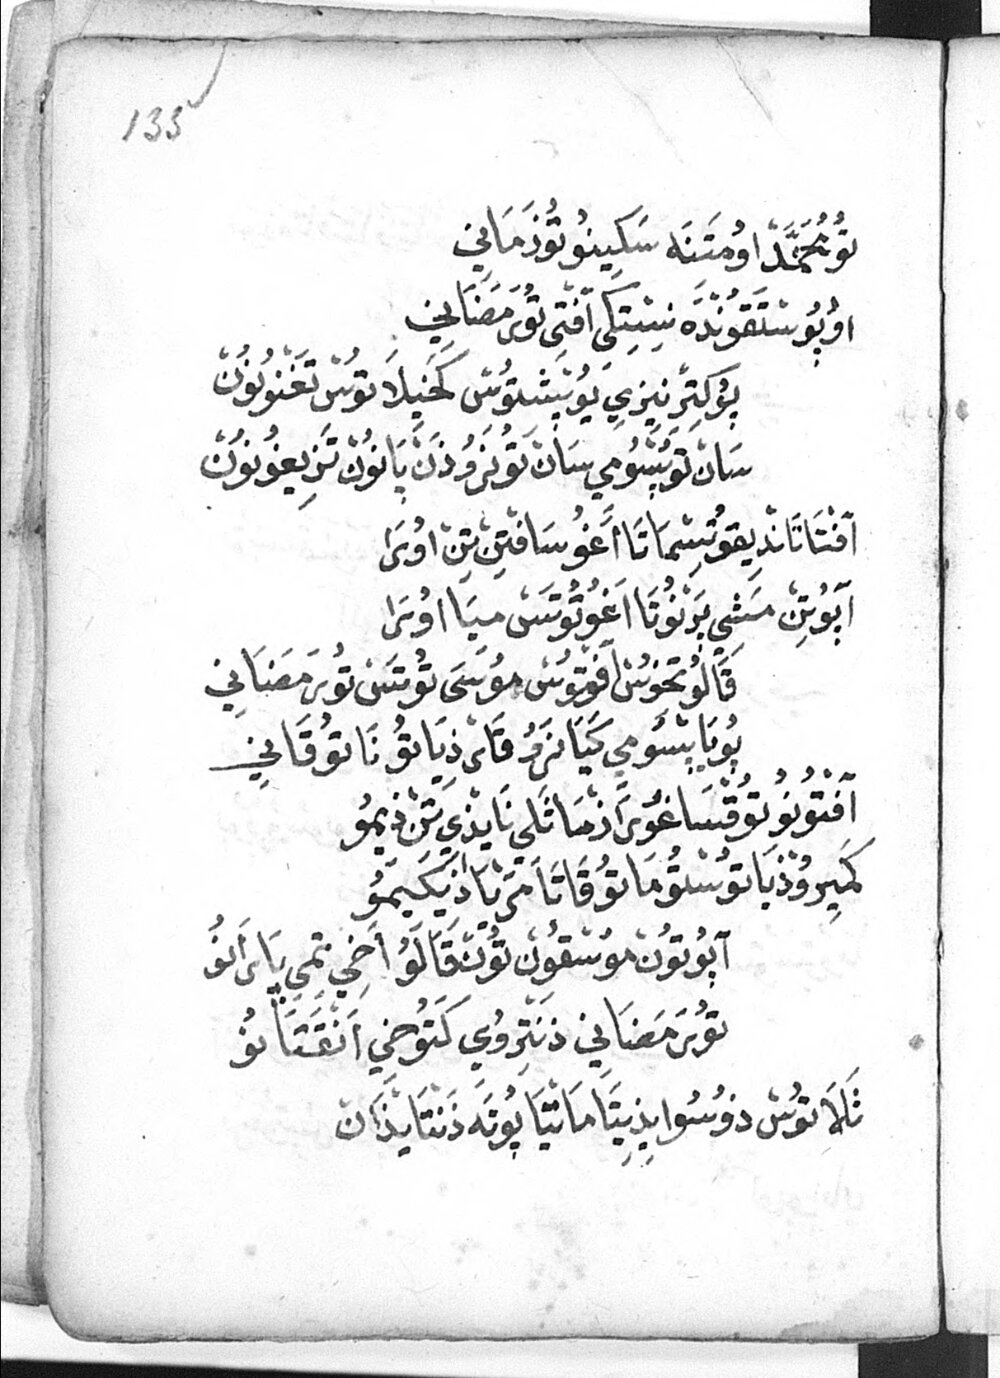 133
تُو مُحَمَّدْ اوُمَتَنَه سَكِينُو تُوزَمَانِي
اوُپُو سْتَقوُنْدَه نِسْتِكِي آفْتِى تُو رَمَضَانِي
پُوكِتِرَ نِيزِي يُوپِشْتُوسْ كَخَيلَا تُوسْ تَغْنُونُونْ
سَانْ تُو پْسُومِي سَانْ تُو نَرُو ذَنْ پَانُونْ تَزِيغُونُونْ
آفْتَا تَانْدِيقوُتِسِمَاتَا اَغُو سَافْتِنْ تِنْ اوُرَا
آپُو تِنْ مَسْي پَرْنُونَا اَغُو تُوتَسْ مِيَا اوُرَا
قَالُوتَخُوسْ آفْتوُسْ مُوسَى تُوتَسْ تُو رَمَضَانِي
پُويَا پْسُومِي كَيَا نَرُو قَاثَرْذِيَا تُو نَا توُقَانِي
آفْتُونُو تُوقْسَاغُورَاذْمَا ثَلِي نَاپْذِي تَنْ ذِيمُو
كَمِيرُوذْيَا تُوسْتُومَا تُو قَاتَا مَرْيَا اَذِيكِيمُو
آپُو تُونْ مُوسْقوُنْ تُونْ قَالَوُ اَخِي تِمِي پَارَانُو
تُو رَمَضَانِي ذَنَتِرُوي كَتُوخِي اَنْقَقَتَانُو
ثَلَا تُوسْ ذوُسُوا پِذِيتَا مَاتْيَا پُوتَه ذَنْتَا پْذَانْ